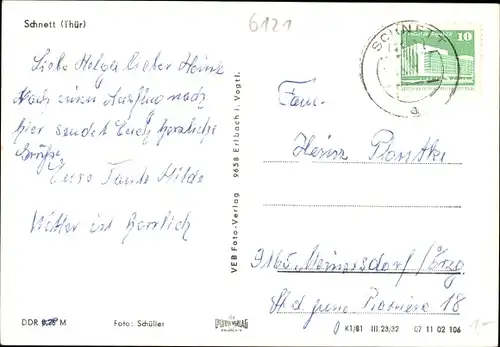 Schnett (Thür)
6121
Liebe Helga lieber Heinz
Nach einem Ausflug nach
hier sendet Euch herzliche
Grüße
Eure Tante Hilde
Wetter ist herrlich
DDR M
Foto: Schüller
VEB Foto-Verlag 9658 Erlbach i. Vogtl.
SCHNETT
a
10
Fam.
Heinz
9165 /Erzg
Str d jungen Pioniere 18
K1/81 III 23/32 07 11 02 106